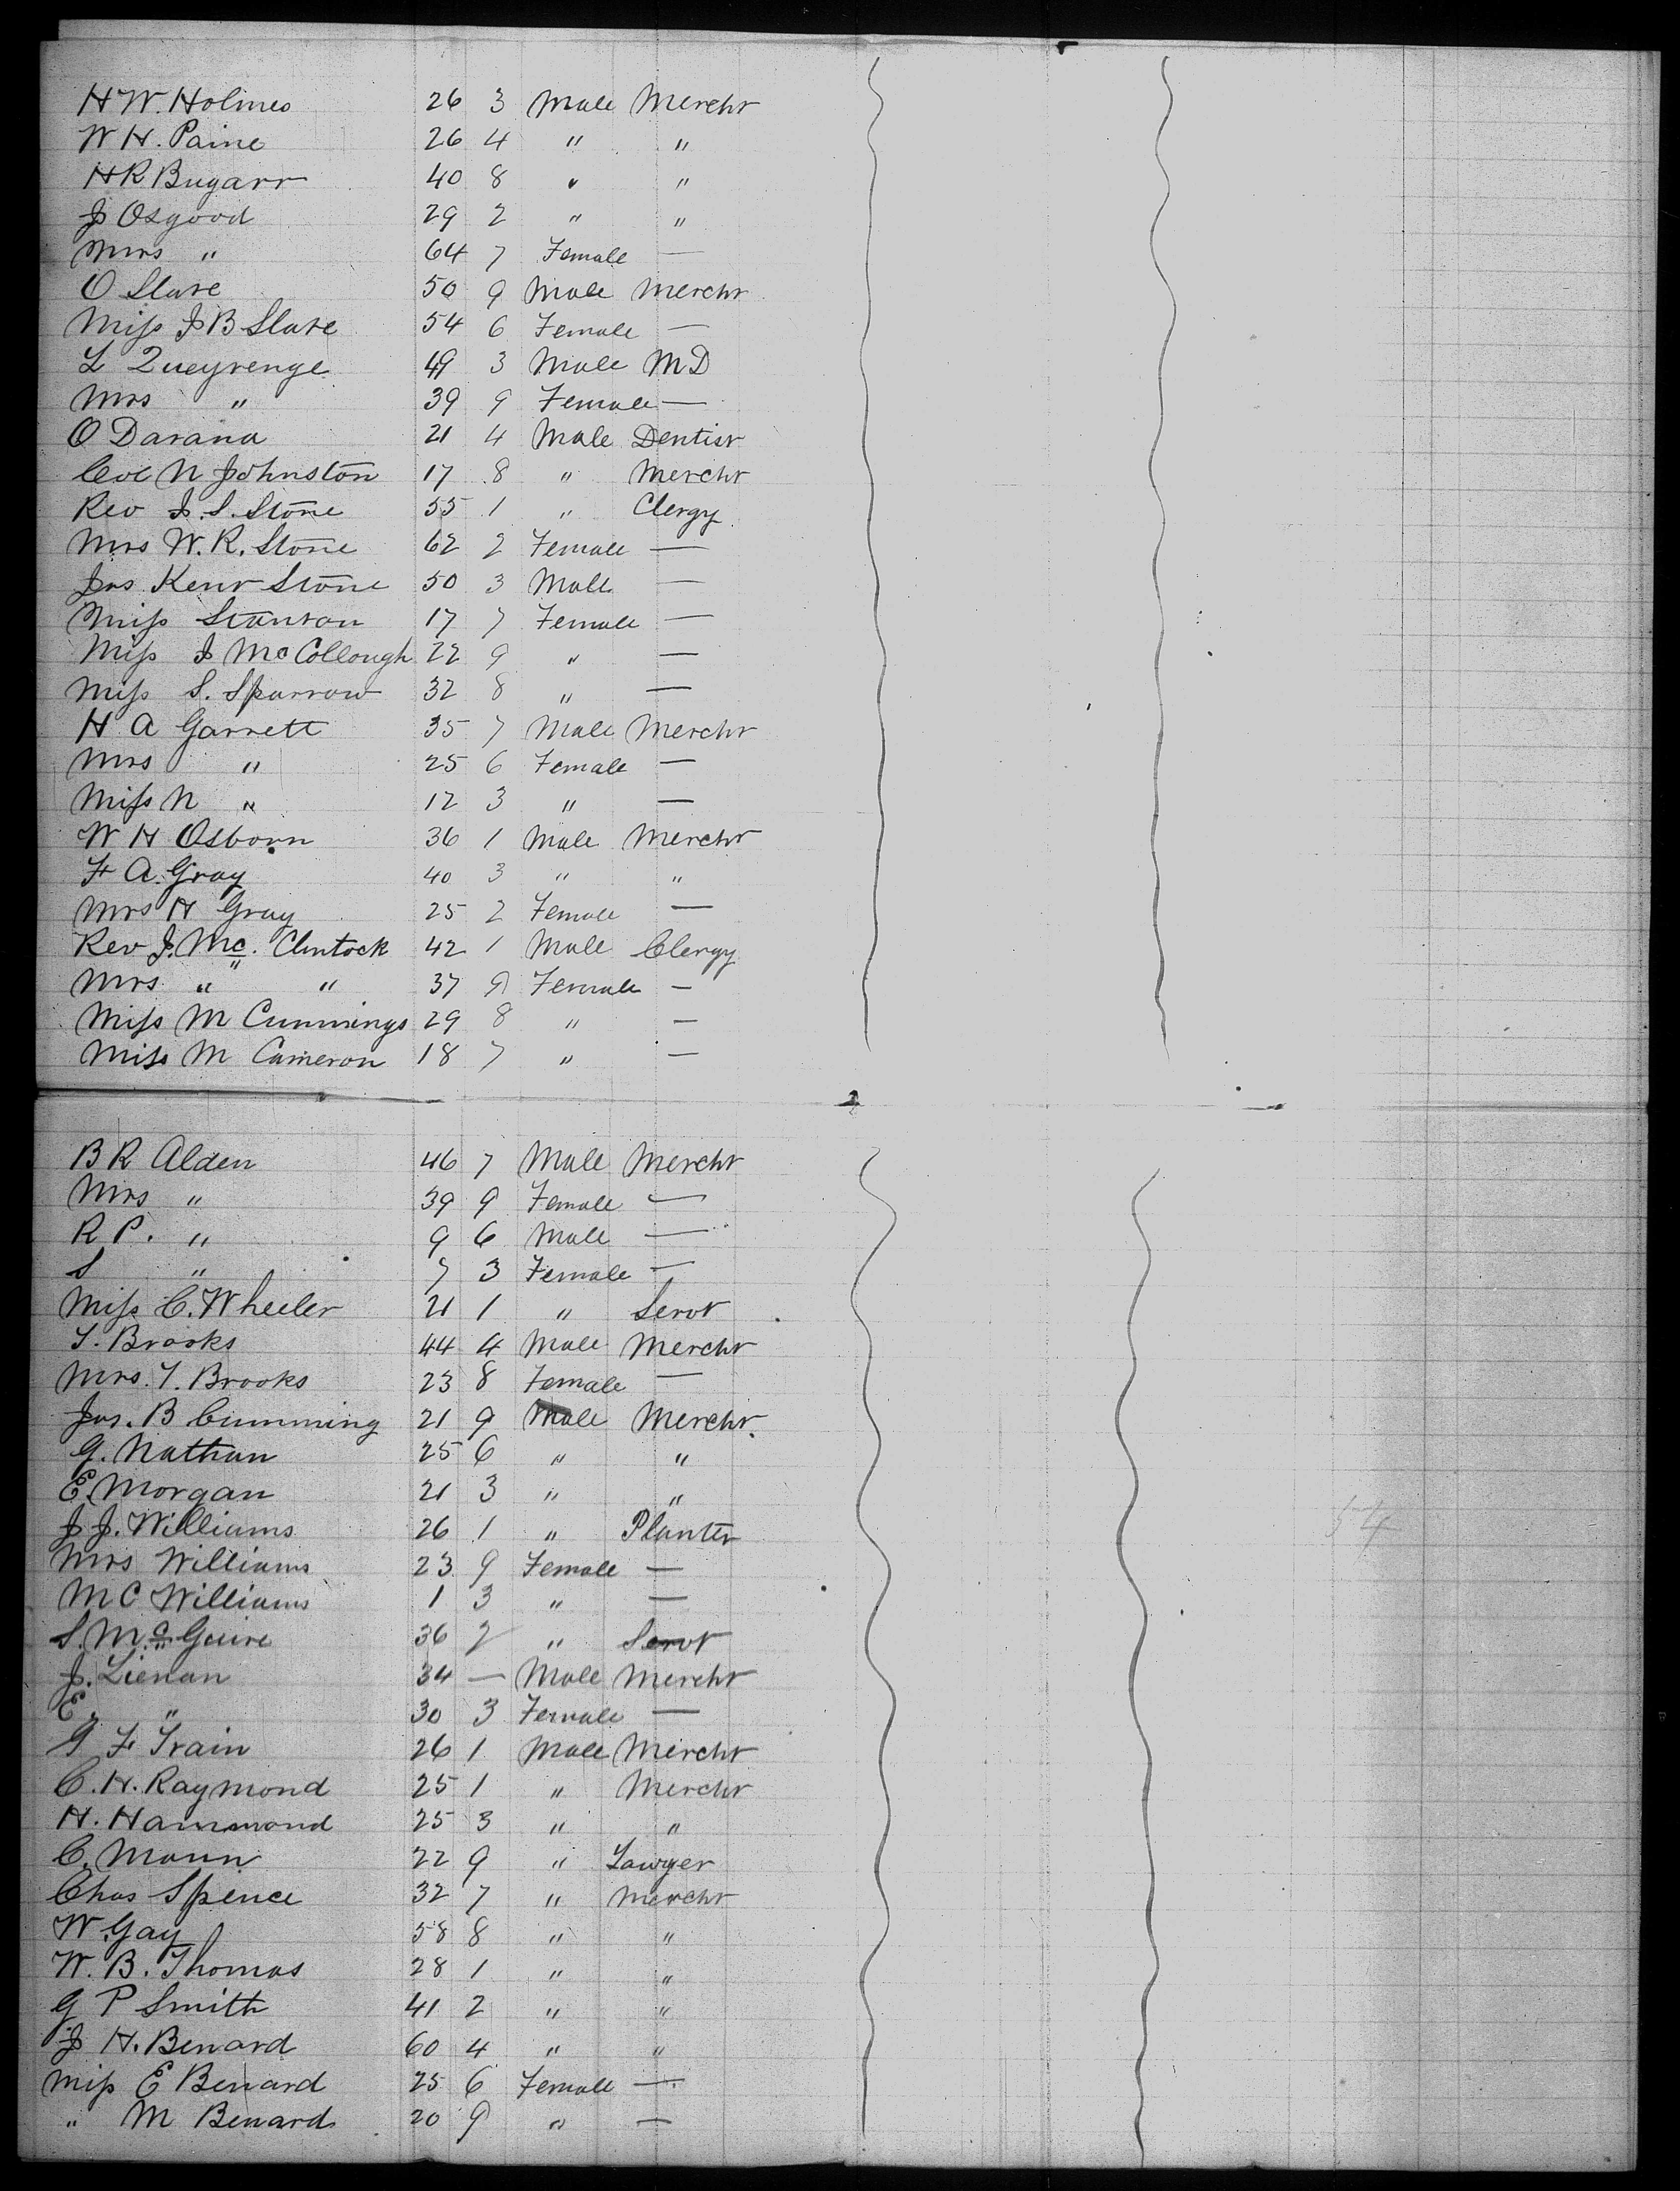 H W. Holmes 26 3 Male Mercht
W H. Paine 26 4 " "
H R Bugarr 40 8 " "
J Osgood 29 2 " "
Mrs " 64 7 Female —
O Slave 50 9 Male Mercht
Miss J B Slave 54 6 Female —
L Queyrenge 49 3 Male M D
Mrs " 39 9 Female —
O Darana 21 4 Male Dentist
Col N Johnston 17 8 " Mercht
Rev J. S. Stone 55 1 " Clergy
Mrs W. R. Stone 62 2 Female —
Jas Kent Stone 50 3 Male —
Miss Stanton 17 7 Female —
Miss J McCollough 22 9 " —
Miss S. Sparrow 32 8 " —
H A Garrett 35 7 Male Mercht
Mrs " 25 6 Female —
Miss N " 12 3 " —
W H Osborn 36 1 Male Mercht
F A. Gray 40 3 " "
Mrs H Gray 25 2 Female —
Rev J. Mc. Clintock 42 1 Male Clergy
Mrs " " 37 9 Female —
Miss M Cummings 29 8 " —
Miss M Cameron 18 7 " —
B R Alden 46 7 Male Mercht
Mrs " 39 9 Female —
R P. " 9 6 Male —
S " 7 3 Female —
Miss C. Wheeler 21 1 " Servt
T. Brooks 44 4 Male Mercht
Mrs. T. Brooks 23 8 Female —
Jas. B Cumming 21 9 Male Mercht.
G. Nathan 25 6 " "
E. Morgan 21 3 " "
J J. Williams 26 1 " Planter
Mrs Williams 23 9 Female —
M C Williams 1 3 " —
S. McGuire 36 2 " Servt
J. Lienan 34 — Male Mercht
E. " 30 3 Female —
G F Train 26 1 Male Mercht
C. H. Raymond 25 1 " Mercht
H. Hammond 25 3 " "
C. Mann 22 9 " Lawyer
Chas Spence 32 7 " Mercht
W. Gay 58 8 " "
W. B. Thomas 28 1 " "
G P Smith 41 2 " "
J H. Benard 60 4 " "
Miss E Benard 25 6 Female —
" M Benard 20 9 " —